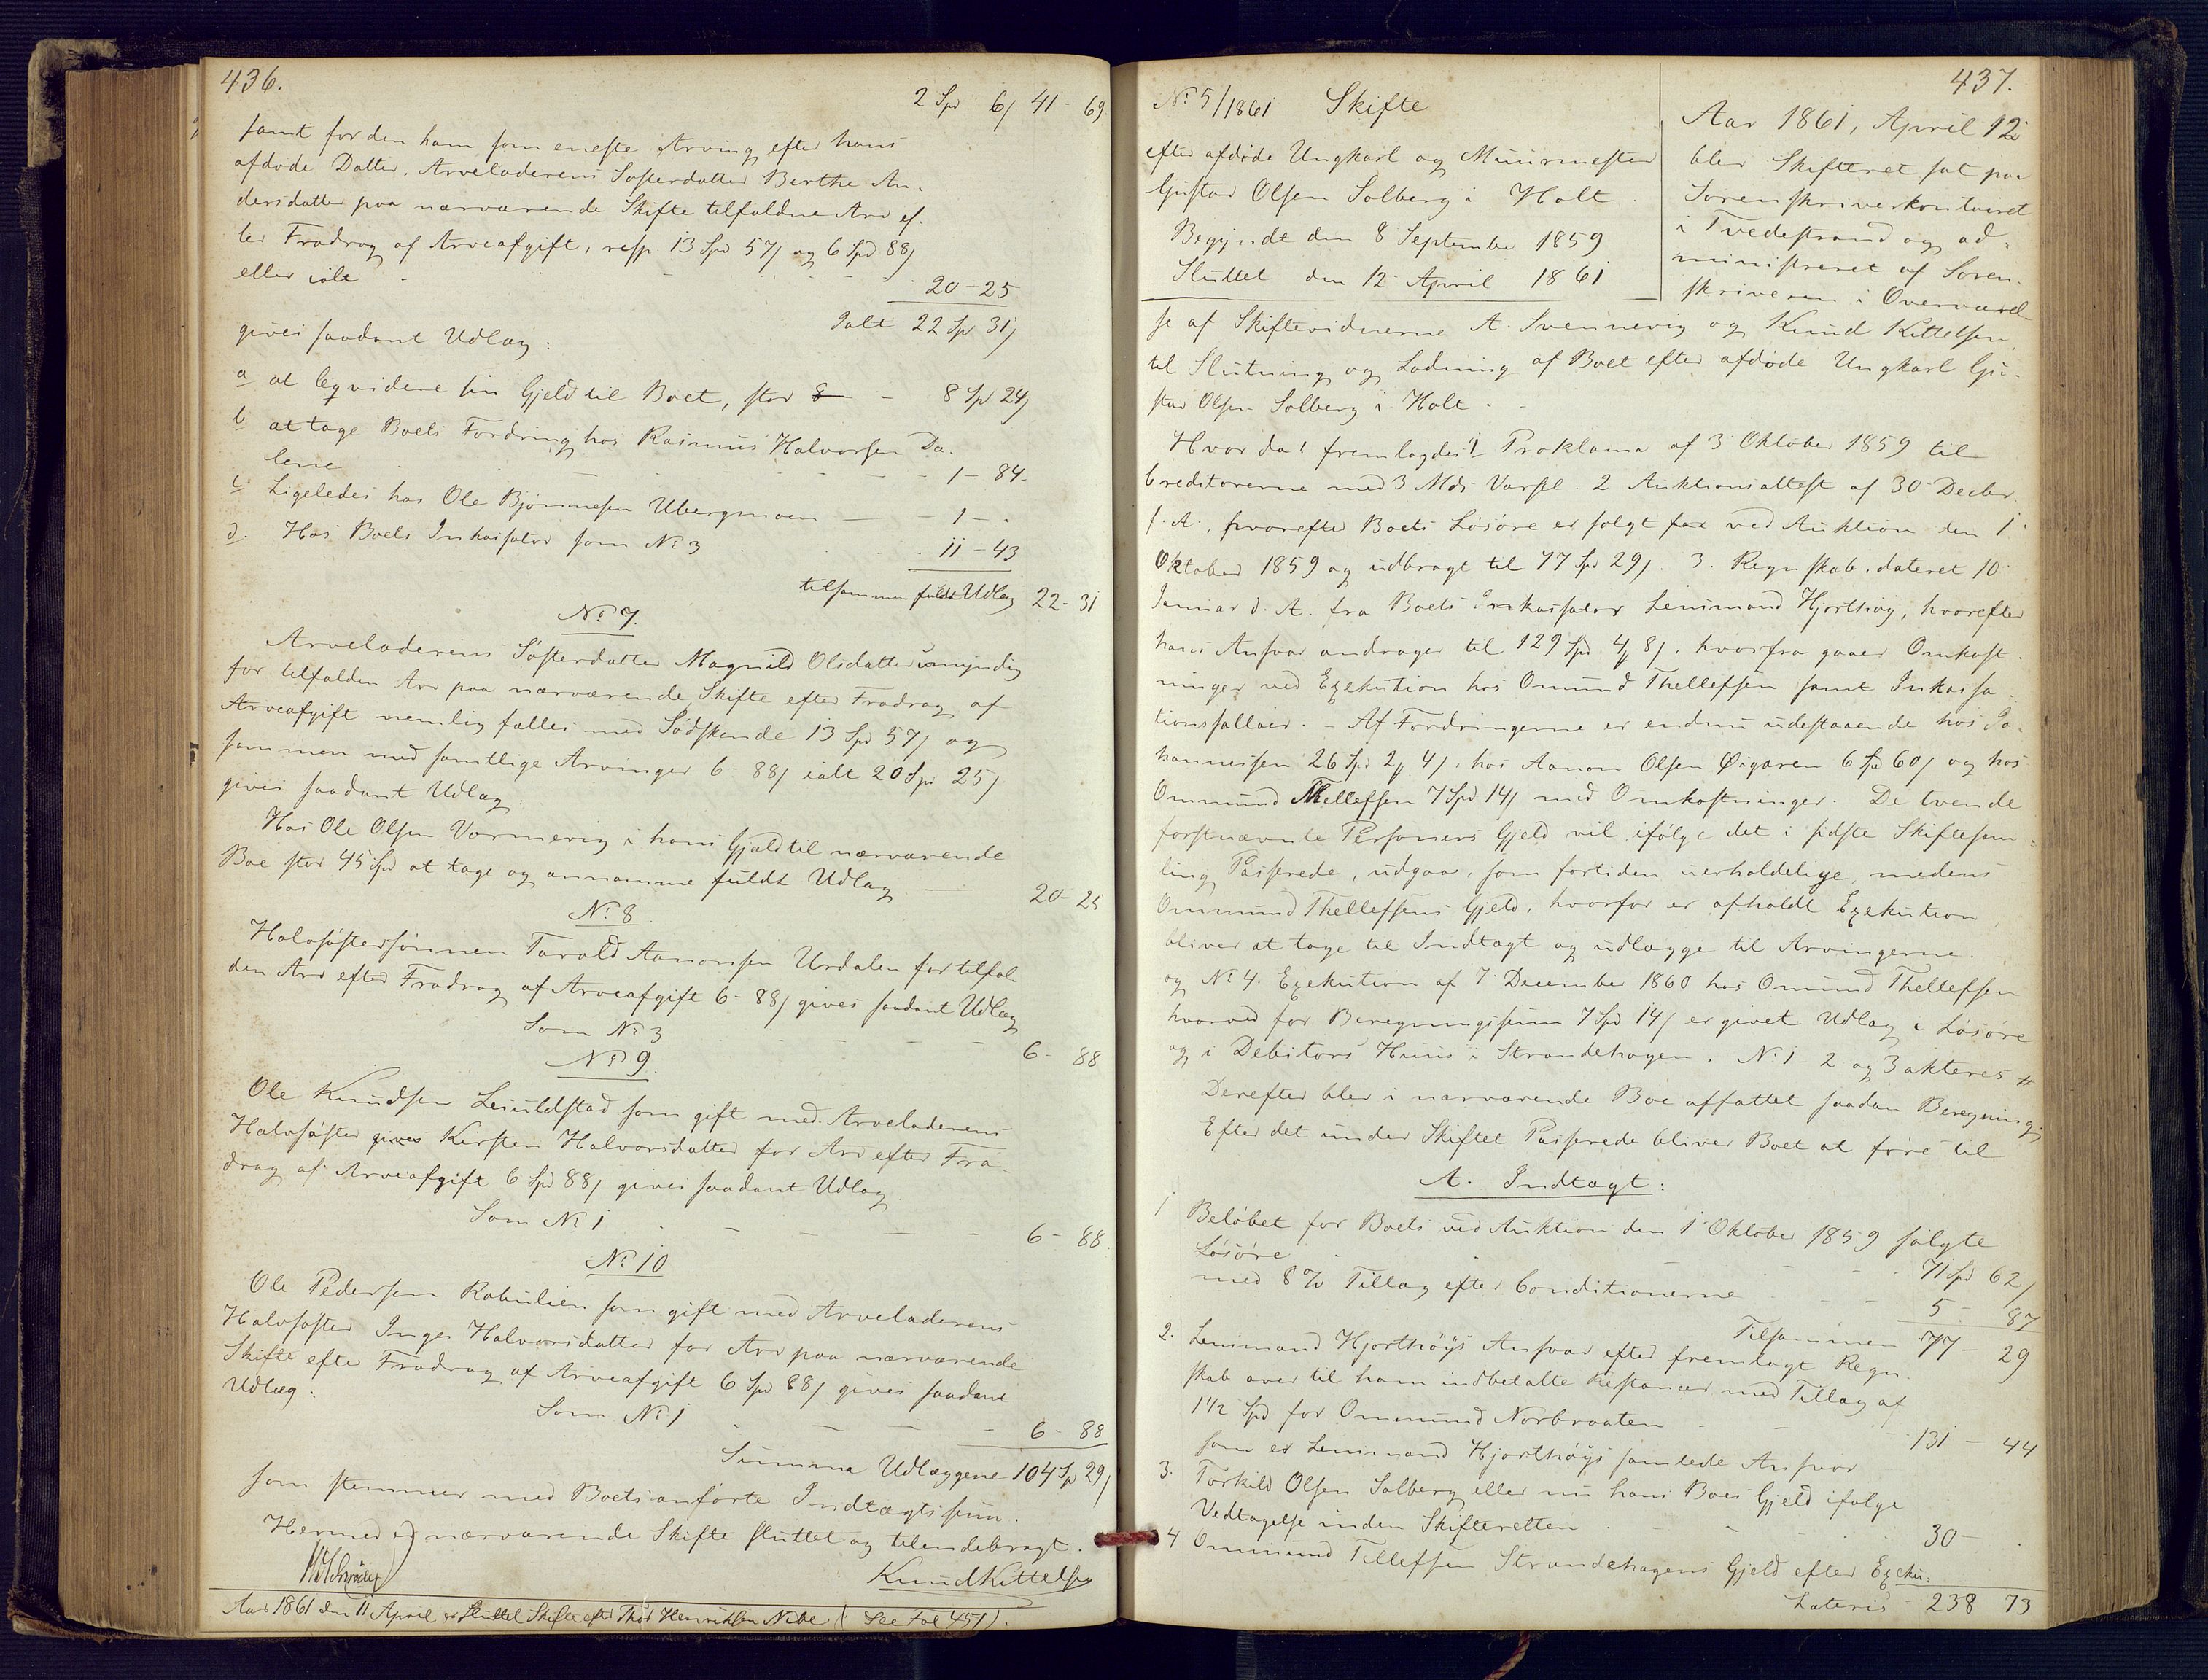 436.
2 Spd 6/ 41 - 69
samt for den ham som eneste Arving efter hans
afdøde Datter, Arveladerens Søsterdatter Berthe An-
dersdatter paa nærværende Skifte tilfaldne Arv ef-
ter Fradrag af Arveafgift, resp. 13 Spd 57/ og 6 Spd 88/
eller ialt 20 - 25
Ialt 22 Spd 31/
gives saadant Udlæg:
a at liqvidere sin Gjeld til Boet, stor 8 Spd 24/
b at tage Boets Fordring hos Rasmus Halvorsen Da-
lene 1 - 84.
c Ligeledes hos Ole Bjørnnesen Ubergmoen 1 - .
d. Hos Boets Inkassator som No 3 11 - 43
tilsammen fuldt Udlæg 22 - 31
No 7.
Arveladerens Søsterdatter Magnild Olsdatter umyndig
for tilfalden Arv paa nærværende Skifte efter Fradrag af
Arveafgift nemlig fælles med Sødskende 13 Spd 57/ og
sammen med samtlige Arvinger 6 - 88/ ialt 20 Spd 25/
gives saadant Udlæg:
Hos Ole Olsen Vormervig i hans Gjæld til nærværende
Boe stor 45 Spd at tage og annamme fuldt Udlæg 20 - 25
No 8.
Halvsøstersønnen Tarald Aanonsen Urdalen for tilfal-
den Arv efter Fradrag af Arveafgift 6 - 88/ gives saadant Udlæg
Som No 3 6 - 88
No 9.
Ole Knudsen Leiuldstad som gift med Arveladerens
Halvsøster gives Kirsten Halvorsdatter for Arv efter Fra-
drag af Arveafgift 6 Spd 88/ gives saadant Udlæg
Som No 1 6 - 88.
No 10
Ole Pedersen Robulien som gift med Arveladerens
Halvsøster Inger Halvorsdatter for Arv paa nærværende
Skifte efter Fradrag af Arveafgift 6 Spd 88/ gives saadant
Udlæg:
Som No 1 6 - 88
Summa Udlæggene 104 Spd 29/
som stemmer med Boets anførte Indtægtssum.
Hermed er nærværende Skifte sluttet og tilendebragt.
Knud Kittelsen
Aar 1861 den 11 April er sluttet Skifte efter Thor Henriksen Nebe (See Fol 451).
437.
No 5/1861 Skifte
efter afdøde Ungkarl og Muurmester
Gustav Olsen Solberg i Holt.
Begyndt den 8 September 1859
Sluttet den 12 April 1861
Aar 1861, April 12
blev Skifteret sat paa
Sorenskriverkontoret
i Tvedestrand og ad-
ministreret af Soren-
skriveren i Overværel-
se af Skiftevidnerne A. Svennevig og Knud Kittelsen
til Slutning og Lodning af Boet efter afdøde Ungkarl Gu-
stav Olsen Solberg i Holt.
Hvor da! fremlagdes 1 Proklama af 3 Oktober 1859 til
Creditorerne med 3 Mdr Varsel. 2 Auktionsattest af 30 Decbr.
f. A., hvorefter Boets Løsøre er solgt ved Auktion den 1
Oktober 1859 og udbragt til 77 Spd 29/. 3. Regnskab, dateret 10
Januar d. A. fra Boets Inkassator Lensmand Hjorthøy, hvorefter
hans Ansvar andrager til 129 Spd 4 # 8/, hvorfra gaaer Omkost-
ninger ved Exekution hos Omund Thellefsen samt Inkassa-
tionssallair. - Af Fordringerne er endnu udestaaende hos Jo-
hannessen 26 Spd 2 # 4/, hos Aanon Olsen Øigaren 6 Spd 60/ og hos
Ommund Thellefsen 7 Spd 14/ med Omkostninger. De tvende
førstnævnte Personers Gjeld vil ifølge det i sidste Skiftesam-
ling Passerede, udgaa, som fortiden uerholdelige, medens
Ommund Thellefsens Gjeld, hvorfor er afholdt Exekution
bliver at tage til Indtægt og udlægge til Arvingerne.
og No 4. Exekution af 7 December 1860 hos Omund Thellefsen
hvorved for Beregningssum 7 Spd 14/ er givet Udlæg i Løsøre
og i Debitors Huus i Strandehagen. No 1 - 2 og 3 akteres #
Derefter blev i nærværende Boe affattet saadan Beregning:
Efter det under Skiftet Passerede bliver Boet at føre til
A. Indtægt:
1 Beløbet for Boets ved Auktion den 1 Oktober 1859 solgte
Løsøre 71 Spd 62/
med 8 % Tillæg efter Conditionerne 5 - 87
Tilsammen 77 - 29
2. Lensmand Hjorthøys Ansvar efter fremlagt Regn-
skab over til ham indbetalte Restancer med Tillæg af
1 1/2 Spd for Ommund Norbraaten 131 - 44
som er Lensmand Hjorthøys samlede Ansvar
3. Torkild Olsen Solberg eller nu hans Boes Gjeld ifølge
Vedtagelse inden Skifteretten 30 - .
4 Ommund Tellefsen Strandehagens Gjeld efter Exeku-
Lateris 238 73